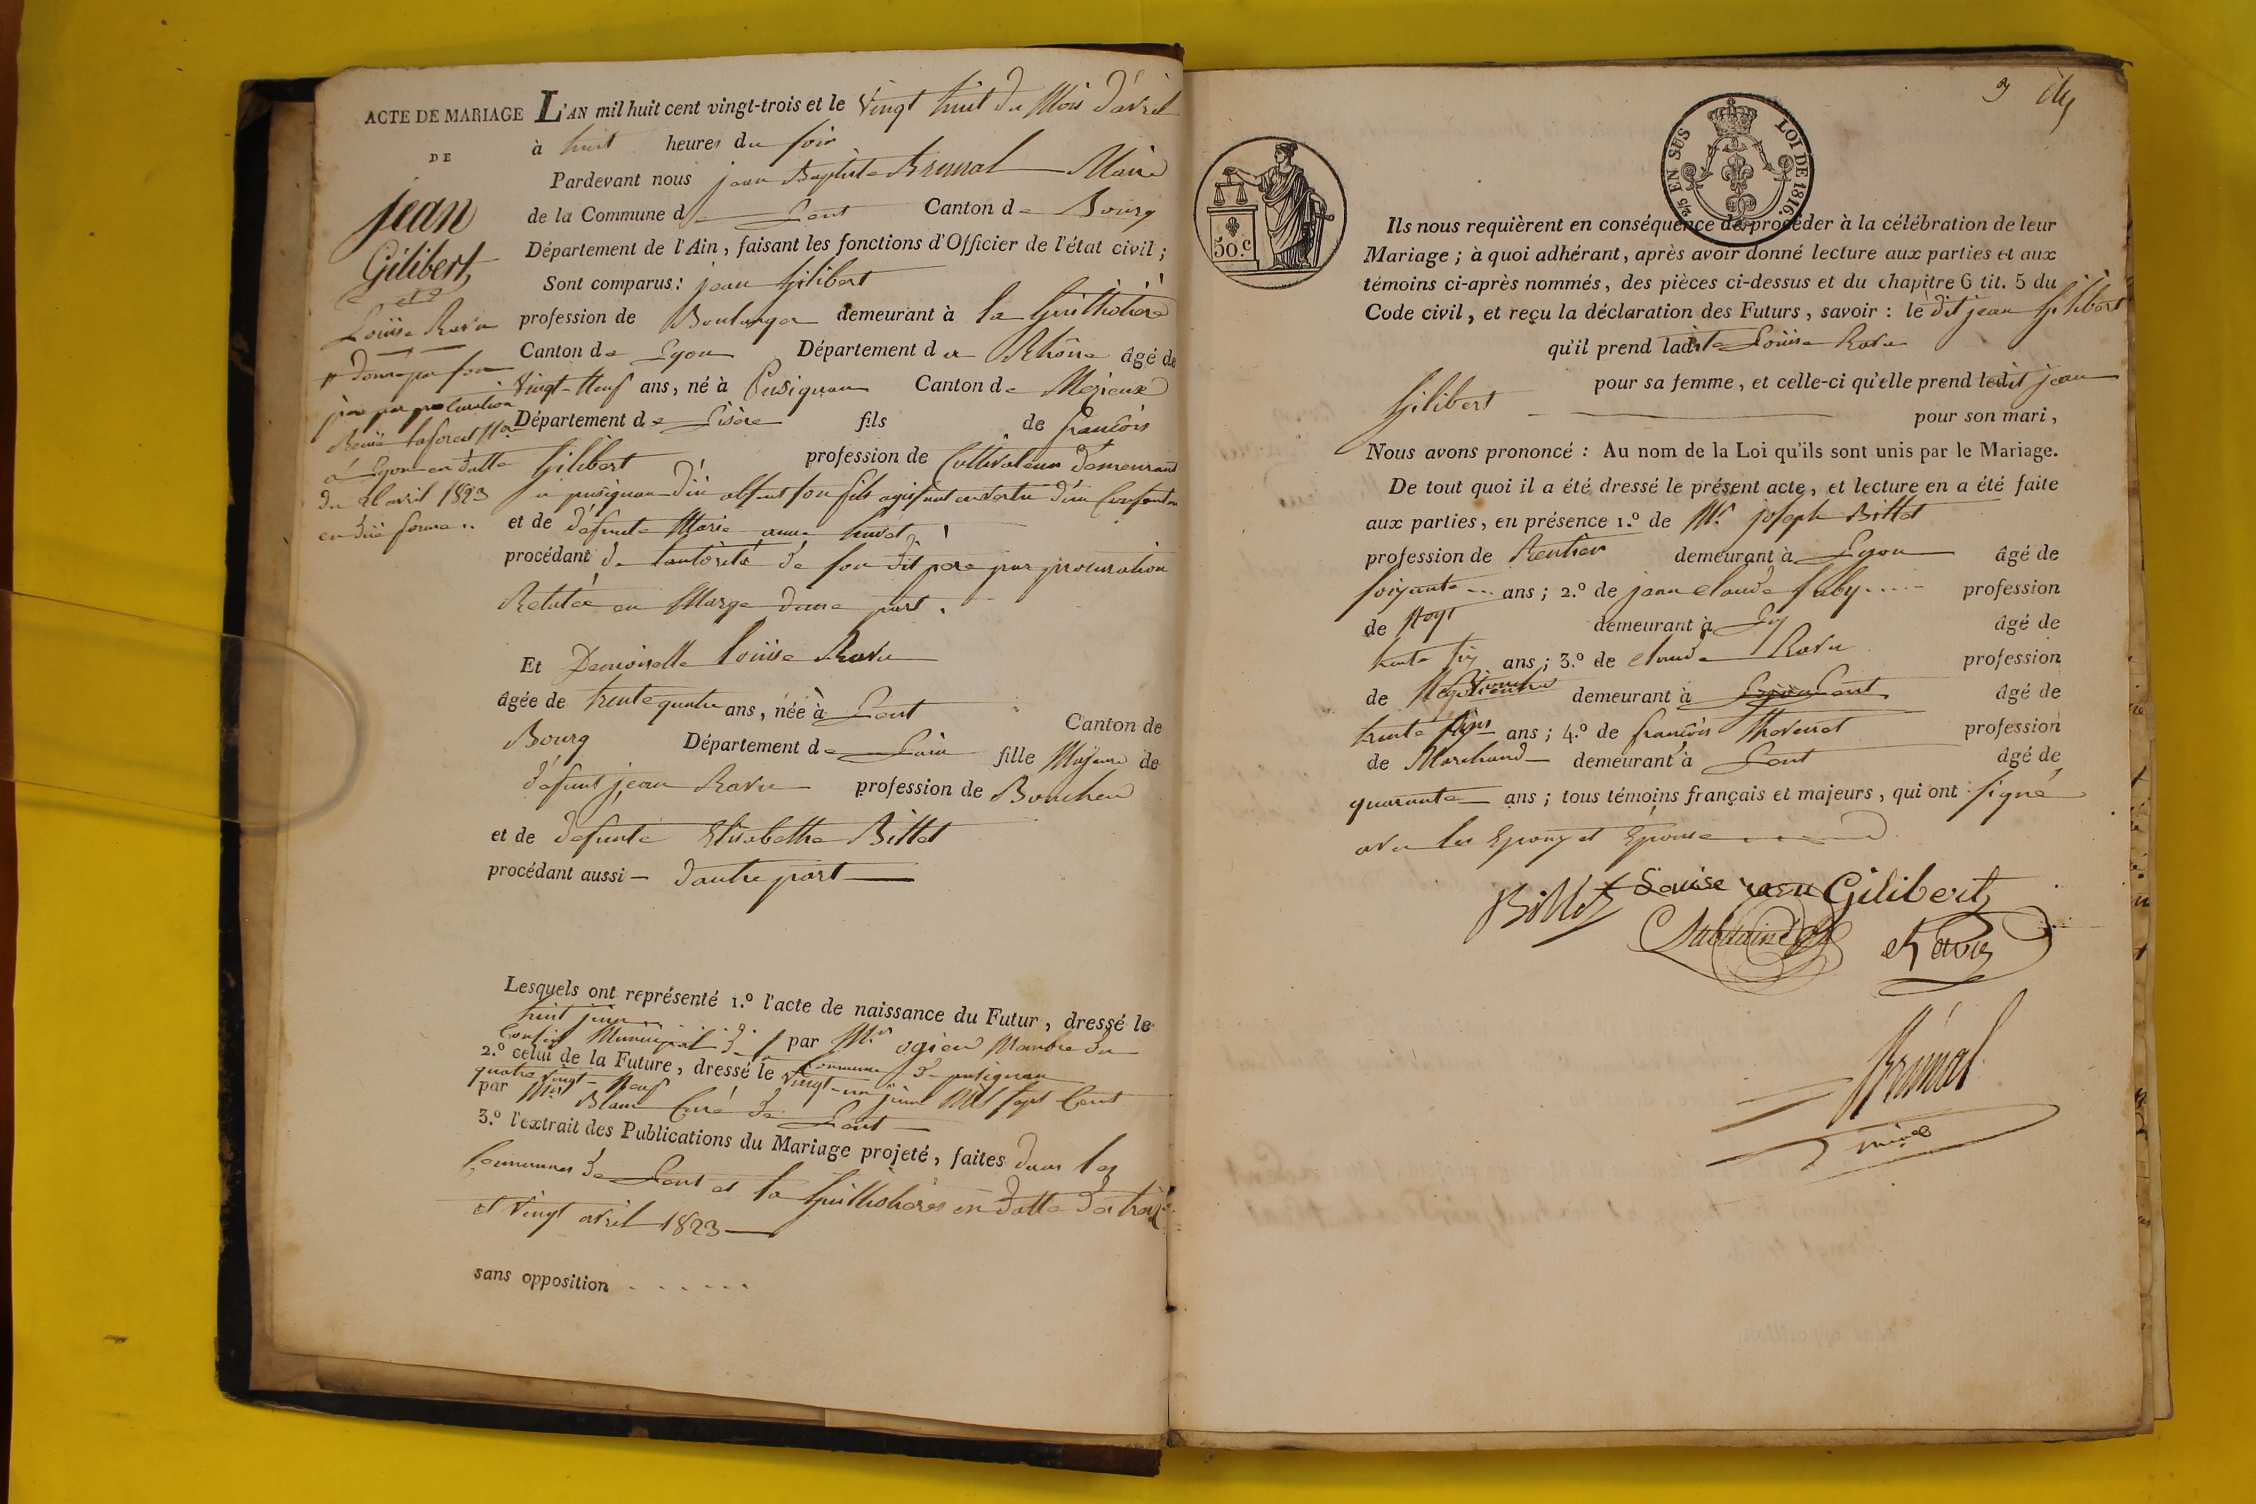 ACTE DE MARIAGE
DE
jean
Gilibert
et
Louise Ravu
donné par son
père par procuration
à Lyon en datte
du avril 1823
en düe forme
L'AN mil huit cent vingt-trois et le Vingt huit du Mois d'avril
à huit heures du soir
Pardevant nous jean Baptiste Brunal Maire
de la Commune de Lent Canton de Bourg
Département de l'Ain, faisant les fonctions d'Officier de l'état civil;
Sont comparus: jean Gilibert
profession de Boulanger demeurant à la Guillotière
Canton de Lyon Département du Rhône âgé de
Vingt-Neuf ans, né à Pusignan Canton de Mezieux
Département de Lisère fils de francois
Gilibert profession de Cultivateur demeurant
a pusignan d'ici absent son fils agissant en vertu d'un
et de défunte Marie anne
procédant de lautorité de son dit père par procuration
Relatée en Marge dune part.
Et Demoiselle Louise Ravu
âgée de trente quatre ans, née à Lent Canton de
Bourg Département de Lain fille Majeure de
défunt jean Ravu profession de Boucher
et de défunte Elisabethe Billet
procédant aussi – dautre part
Lesquels ont représenté 1.º l'acte de naissance du Futur, dressé le
huit juin par Mr ogier Membre du
Conseil Municipal de la Commune de pusignan
2.º celui de la Future, dressé le vingt-un juin Mil sept Cent
quatre Vingt-Neuf
par Mr Blanc Curé de Lent
3.º l'extrait des Publications du Mariage projeté, faites dans les
Communes de Lent et la Guillotière en datte des treize
et Vingt avril 1823
sans opposition . . . . . .
3
2/5 EN SUS LOI DE 1816.
50.c
Ils nous requièrent en conséquence de procéder à la célébration de leur
Mariage; à quoi adhérant, après avoir donné lecture aux parties et aux
témoins ci-après nommés, des pièces ci-dessus et du chapitre 6 tit. 5 du
Code civil, et reçu la déclaration des Futurs, savoir: le dit jean Gilibert
qu'il prend ladite Louise Ravu
pour sa femme, et celle-ci qu'elle prend ledit jean
Gilibert pour son mari,
Nous avons prononcé: Au nom de la Loi qu'ils sont unis par le Mariage.
De tout quoi il a été dressé le présent acte, et lecture en a été faite
aux parties, en présence 1.º de Mr. joseph Billet
profession de Rentier demeurant à Lyon âgé de
soixante ... ans; 2.º de jean claude profession
de Negt demeurant à Ly âgé de
trente six ans; 3.º de claude Ravu profession
de Negotiant demeurant à Lent âgé de
trente ans; 4.º de francois Thevenet profession
de Marchand demeurant à Lent âgé de
quarante ans; tous témoins français et majeurs, qui ont signé
avec les Epoux et Epouse
Billet Louise ravu Gilibert
C Ravu
Brunal
maire